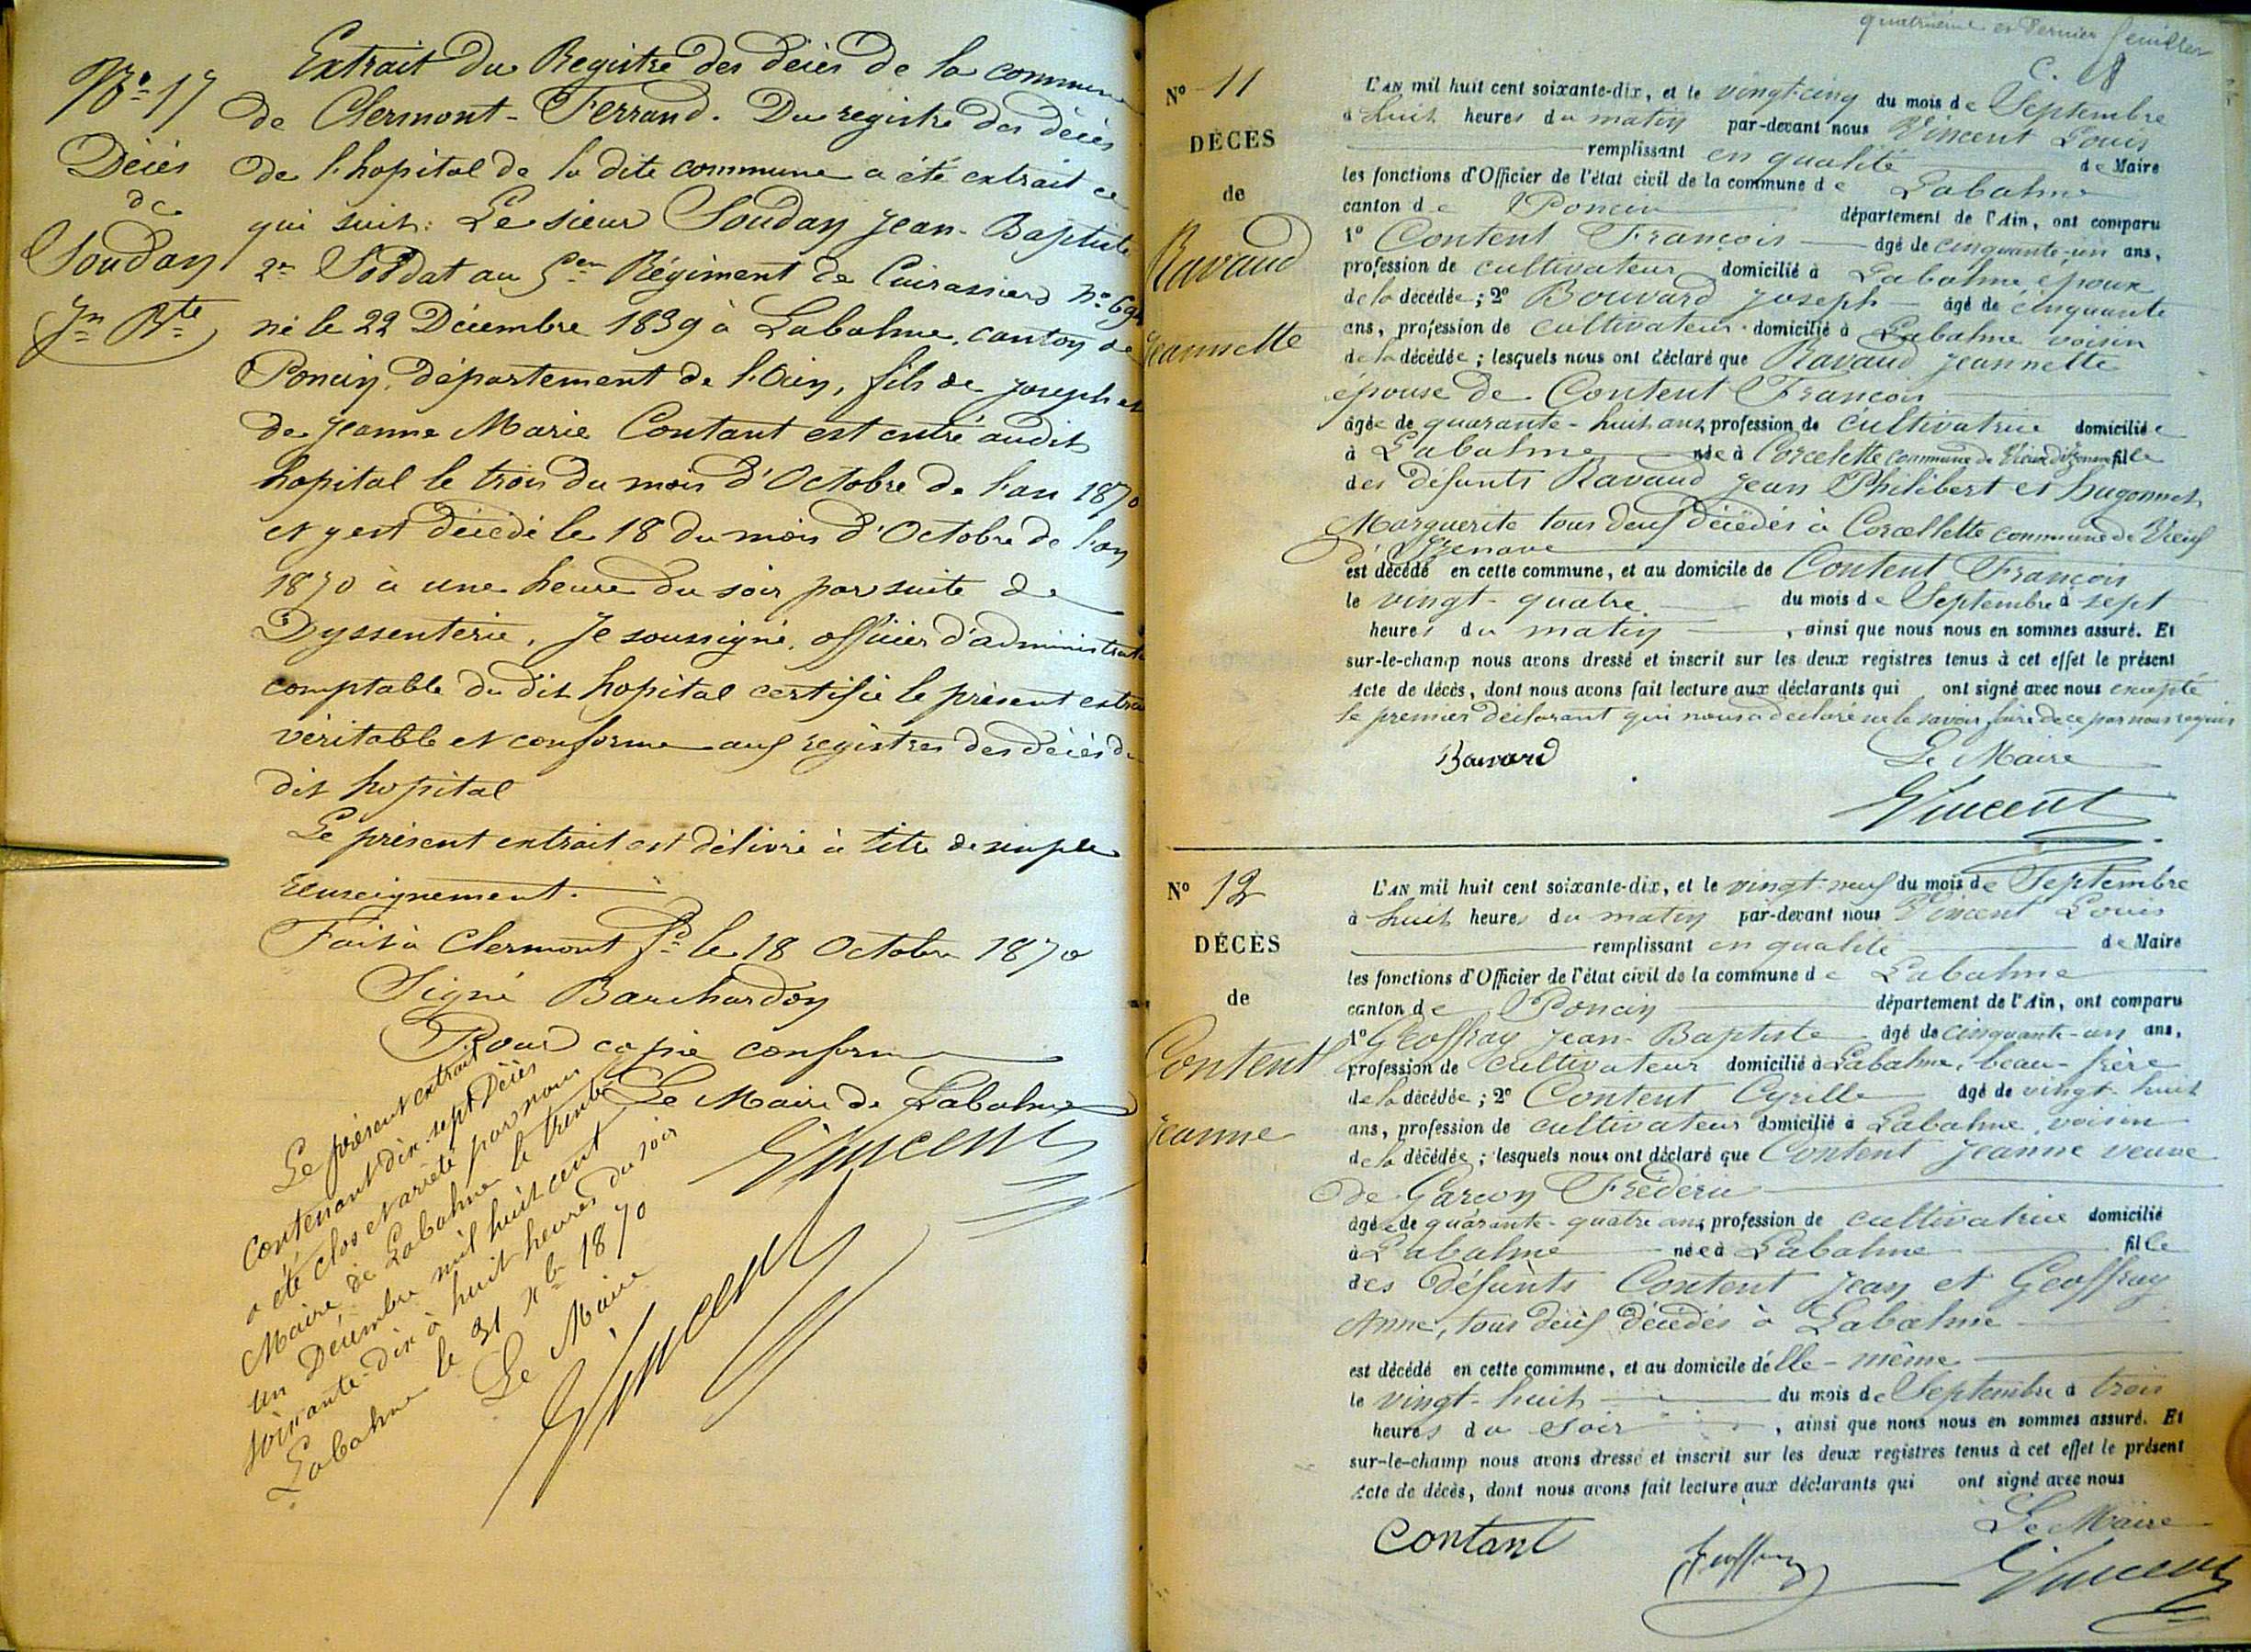 N° 17
Décès
de
Souday
Jn Bte
Extrait du Registre des décès de la commune
de Clermont-Ferrand. Du registre des décès
de l'hopital de la dite commune a été extrait ce
qui suit: Le sieur Souday Jean-Baptiste
2e Soldat au 5em Régiment de Cuirassiers N°
né le 22 Décembre 1839 à Labalme, canton de
Poncin, département de l'Ain, fils de Joseph et
de Jeanne Marie Contant est entré audit
hopital le trois du mois d'Octobre de l'an 1870
et y est décédé le 18 du mois d'Octobre de l'an
1870 à une heure du soir par suite de
Dyssenterie, Je soussigné, officier d'administrat
comptable du dit hopital certifie le présent extrait
véritable et conforme aux registres des décès du
dit hopital
Le présent extrait est délivré à titre de simple
renseignement.
Fait à Clermont Fd le 18 Octobre 1870
Signé Barchardon
Pour copie conforme
Le Maire de Labalme
Vincent
Le présent extrait
contenant dix-sept Décès
a été clos et arrêté par nous
Maire de Labalme le trente
un Décembre mil huit cent
soixante-dix à huit heures du soir
Labalme le 31 Xbre 1870
Le Maire
Vincent
quatrième et dernier feuillet
N° 11
DÉCÈS
de
Ravaud
Jeannette
L'AN mil huit cent soixante-dix, et le vingt-cinq du mois de Septembre
à huit heures du matin par-devant nous Vincent Louis
remplissant en qualité de Maire
les fonctions d'Officier de l'état civil de la commune de Labalme
canton de Poncin département de l'Ain, ont comparu
1° Content François âgé de cinquante-un ans,
profession de cultivateur domicilié à Labalme, époux
de la décédée; 2° Bouvard Joseph âgé de cinquante
ans, profession de cultivateur domicilié à Labalme voisin
de la décédée; lesquels nous ont déclaré que Ravaud Jeannette
épouse de Content François
âgée de quarante-huit ans, profession de cultivatrice domiciliée
à Labalme née à Corcelette commune de Vieux d'Izenave fille
des défunts Ravaud Jean Philibert et Hugonnet
Marguerite tous deux décédés à Corcellette commune de Vieux
d'Izenave
est décédé en cette commune, et au domicile de Content François
le vingt-quatre du mois de Septembre à sept
heures du matin, ainsi que nous nous en sommes assuré. Et
sur-le-champ nous avons dressé et inscrit sur les deux registres tenus à cet effet le présent
acte de décès, dont nous avons fait lecture aux déclarants qui ont signé avec nous excepté
le premier déclarant qui nous a déclaré ne le savoir faire de ce par nous requis
Bauvard
Le Maire
Vincent
N° 12
DÉCÈS
de
Content
Jeanne
L'AN mil huit cent soixante-dix, et le vingt-neuf du mois de Septembre
à huit heures du matin par-devant nous Vincent Louis
remplissant en qualité de Maire
les fonctions d'Officier de l'état civil de la commune de Labalme
canton de Poncin département de l'Ain, ont comparu
1° Geoffray Jean-Baptiste âgé de cinquante-un ans,
profession de cultivateur domicilié à Labalme, beau-frère
de la décédée; 2° Content Cyrille âgé de vingt-huit
ans, profession de cultivateur domicilié à Labalme, voisin
de la décédée; lesquels nous ont déclaré que Content Jeanne veuve
de Garçon Frédéric
âgée de quarante-quatre ans, profession de cultivatrice domicilié
à Labalme née à Labalme fille
des défunts Content Jean et Geoffray
Anne, tous deux décédés à Labalme
est décédé en cette commune, et au domicile d'elle-même
le vingt-huit du mois de Septembre à trois
heures du soir, ainsi que nous nous en sommes assuré. Et
sur-le-champ nous avons dressé et inscrit sur les deux registres tenus à cet effet le présent
acte de décès, dont nous avons fait lecture aux déclarants qui ont signé avec nous
Le Maire
Contant Geoffray Vincent